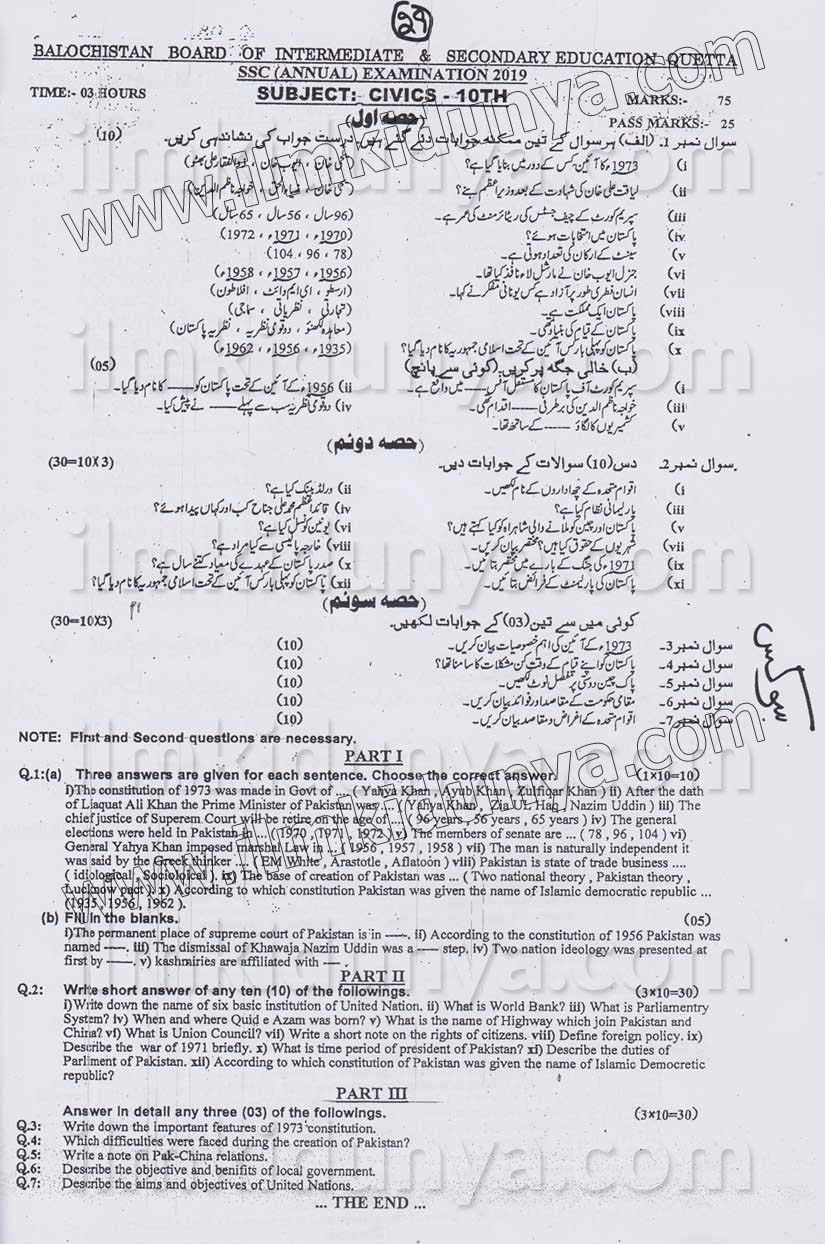 29
BALOCHISTAN BOARD OF INTERMEDIATE & SECONDARY EDUCATION QUETTA
SSC (ANNUAL) EXAMINATION 2019
TIME:- 03 HOURS SUBJECT: CIVICS - 10TH MARKS:- 75
حصہ اول PASS MARKS:- 25
سوال نمبر 1۔ (الف) ہر سوال کے تین ممکنہ جوابات دئے گئے ہیں درست جواب کی نشاندہی کریں۔ (10)
i) 1973ء کا آئین کس کے دور میں بنایا گیا ہے؟ (یحیٰ خان ، ایوب خان ، ذوالفقار علی بھٹو)
ii) لیاقت علی خان کی شہادت کے بعد وزیر اعظم بنے؟ (یحیٰ خان ، ضیاء الحق ، خواجہ ناظم الدین)
iii) سپریم کورٹ کے چیف جسٹس کی ریٹائرمنٹ کی عمر ہے۔ (96 سال ، 56 سال ، 65 سال)
iv) پاکستان میں انتخابات ہوئے؟ (1970ء ، 1971ء ، 1972)
v) سینٹ کے ارکان کی تعداد ہوتی ہے۔ (78 ، 96 ، 104)
vi) جنرل ایوب خان نے مارشل لاء نافذ کیا تھا۔ (1956ء ، 1957ء ، 1958ء)
vii) انسان فطری طور پر آزاد ہے کس یونانی مفکر نے کہا۔ (ارسطو ، ای ایم وائٹ ، افلاطون)
viii) پاکستان ایک مملکت ہے۔ (تجارتی ، نظریاتی ، سماجی)
ix) پاکستان کے قیام کی بنیاد تھی۔ (معاہدہ لکھنؤ ، دو قومی نظریہ ، نظریہ پاکستان)
x) پاکستان کو پہلی بار کس آئین کے تحت اسلامی جمہوریہ کا نام دیا گیا؟ (1935ء ، 1956ء ، 1962ء)
(ب) خالی جگہ پر کریں۔ (کوئی سے پانچ) (05)
i) سپریم کورٹ آف پاکستان کا مستقل آفس ---- میں واقع ہے۔ ii) 1956ء کے آئین کے تحت پاکستان کو ---- کا نام دیا گیا۔
iii) خواجہ ناظم الدین کی برطرفی ---- اقدام تھی۔ iv) دو قومی نظریہ سب سے پہلے ---- نے پیش کیا۔
v) کشمیریوں کا لگاؤ ---- کے ساتھ تھا۔
(حصہ دوئم)
سوال نمبر 2۔ دس (10) سوالات کے جوابات دیں۔ (30=10X3)
i) اقوام متحدہ کے چھ اداروں کے نام لکھیں۔ ii) ورلڈ بینک کیا ہے؟
iii) پارلیمانی نظام کیا ہے؟ iv) قائد اعظم محمد علی جناح کب اور کہاں پیدا ہوئے؟
v) پاکستان اور چین کو ملانے والی شاہراہ کو کیا کہتے ہیں؟ vi) یونین کونسل کیا ہے؟
vii) شہریوں کے حقوق کیا ہیں؟ مختصر بیان کریں۔ viii) خارجہ پالیسی سے کیا مراد ہے؟
ix) 1971ء کی جنگ کے بارے میں مختصر بتائیں۔ x) صدر پاکستان کے عہدے کی معیاد کتنے سال ہے؟
xi) پاکستان کی پارلیمنٹ کے فرائض بتائیں۔ xii) پاکستان کو پہلی بار کس آئین کے تحت اسلامی جمہوریہ کا نام دیا گیا؟
(حصہ سوئم)
کوئی میں سے تین (03) کے جوابات لکھیں۔ (30=10X3)
سوال نمبر 3۔ 1973ء کے آئین کی اہم خصوصیات بیان کریں۔ (10)
سوال نمبر 4۔ پاکستان کو اپنے قیام کے وقت کن مشکلات کا سامنا تھا؟ (10)
سوال نمبر 5۔ پاک چین دوستی پر مفصل نوٹ لکھیں۔ (10)
سوال نمبر 6۔ مقامی حکومت کے مقاصد اور فوائد بیان کریں۔ (10)
سوال نمبر 7۔ اقوام متحدہ کے اغراض و مقاصد بیان کریں۔ (10)
سوکس
NOTE: First and Second questions are necessary.
PART I
Q.1:(a) Three answers are given for each sentence. Choose the correct answer. (1×10=10)
i)The constitution of 1973 was made in Govt of .... ( Yahya Khan , Ayub Khan , Zulfiqar Khan ) ii) After the dath
of Liaquat Ali Khan the Prime Minister of Pakistan was .... ( Yahya Khan , Zia UL Haq , Nazim Uddin ) iii) The
chief justice of Superem Court will be retire on the age of .... ( 96 years , 56 years , 65 years ) iv) The general
elections were held in Pakistan in ... (1970 , 1971 , 1972 ) v) The members of senate are ... ( 78, 96, 104 ) vi)
General Yahya Khan imposed marshal Law in ... ( 1956 , 1957 , 1958 ) vii) The man is naturally independent it
was said by the Greek thinker .... ( EM White , Arastotle , Aflatoon ) viii) Pakistan is state of trade business ....
( idiological , Socioloical ). ix) The base of creation of Pakistan was ... ( Two national theory , Pakistan theory ,
Lucknow pact ). x) According to which constitution Pakistan was given the name of Islamic democratic republic ...
(1935, 1956 , 1962 ).
(b) Fill in the blanks. (05)
i)The permanent place of supreme court of Pakistan is in -----. ii) According to the constitution of 1956 Pakistan was
named -----. iii) The dismissal of Khawaja Nazim Uddin was a ----- step. iv) Two nation ideology was presented at
first by ------. v) kashmiries are affiliated with ---- .
PART II
Q.2: Write short answer of any ten (10) of the followings. (3×10=30)
i)Write down the name of six basic institution of United Nation. ii) What is World Bank? iii) What is Parliamentry
System? iv) When and where Quid e Azam was born? v) What is the name of Highway which join Pakistan and
China? vi) What is Union Council? vii) Write a short note on the rights of citizens. viii) Define foreign policy. ix)
Describe the war of 1971 briefly. x) What is time period of president of Pakistan? xi) Describe the duties of
Parliment of Pakistan. xii) According to which constitution of Pakistan was given the name of Islamic Democretic
republic?
PART III
Answer in detail any three (03) of the followings. (3×10=30)
Q.3: Write down the important features of 1973 constitution.
Q.4: Which difficulties were faced during the creation of Pakistan?
Q.5: Write a note on Pak-China relations.
Q.6: Describe the objective and benifits of local government.
Q.7: Describe the aims and objectives of United Nations.
... THE END ...
www.ilmkidunya.com
www.ilmkidunya.com
ilmkidunya.com
ilmkidunya.com
ilmkidunya.com
ilmkidunya.com
ilmkidunya.com